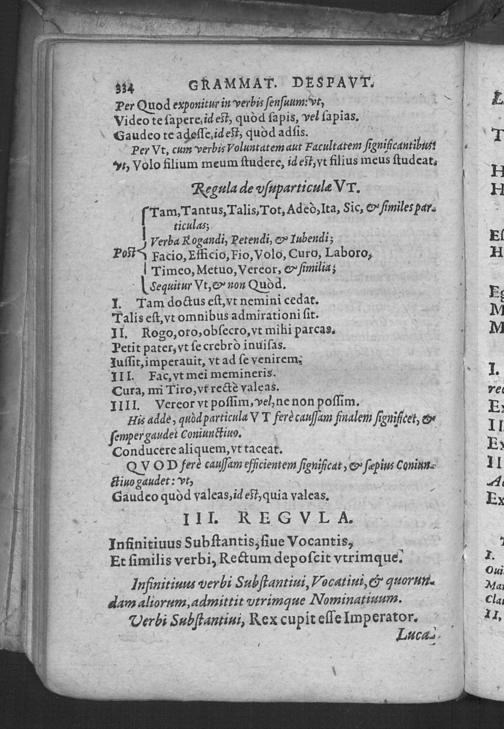 334 GRAMMAT. DESPAVT.
Per Quod exponitur in verbis sensuum: vt,
Video te sapere, id est, quòd sapis, vel sapias.
Gaudeo te adesse, id est, quòd adsis.
Per Vt, cum verbis Voluntatem aut Facultatem significantibus:
vt, Volo filium meum studere, id est, vt filius meus studeat.
Regula de vsu particulæ VT.
Tam, Tantus, Talis, Tot, Adeò, Ita, Sic, & similes par-
ticulas;
Verba Rogandi, Petendi, & Iubendi;
Post Facio, Efficio, Fio, Volo, Curo, Laboro,
Timeo, Metuo, Vereor, & similia;
Sequitur Vt, & non Quòd.
I. Tam doctus est, vt nemini cedat.
Talis est, vt omnibus admirationi sit.
II. Rogo, oro, obsecro, vt mihi parcas.
Petit pater, vt se crebrò inuisas.
Iussit, imperauit, vt ad se venirem;
III. Fac, vt mei memineris.
Cura, mi Tiro, vt rectè valeas.
IIII. Vereor vt possim, vel, ne non possim.
His adde, quòd particula VT ferè caussam finalem significet, &
semper gaudet Coniunctiuo.
Conducere aliquem, vt taceat.
QVOD ferè caussam efficientem significat, & sæpius Coniun-
ctiuo gaudet: vt,
Gaudeo quòd valeas, id est, quia valeas.
III. REGVLA.
Infinitiuus Substantis, siue Vocantis,
Et similis verbi, Rectum deposcit vtrimque.
Infinitiuus verbi Substantiui, Vocatiui, & quorun-
dam aliorum, admittit vtrimque Nominatiuum.
Verbi Substantiui, Rex cupit esse Imperator.
Luca-